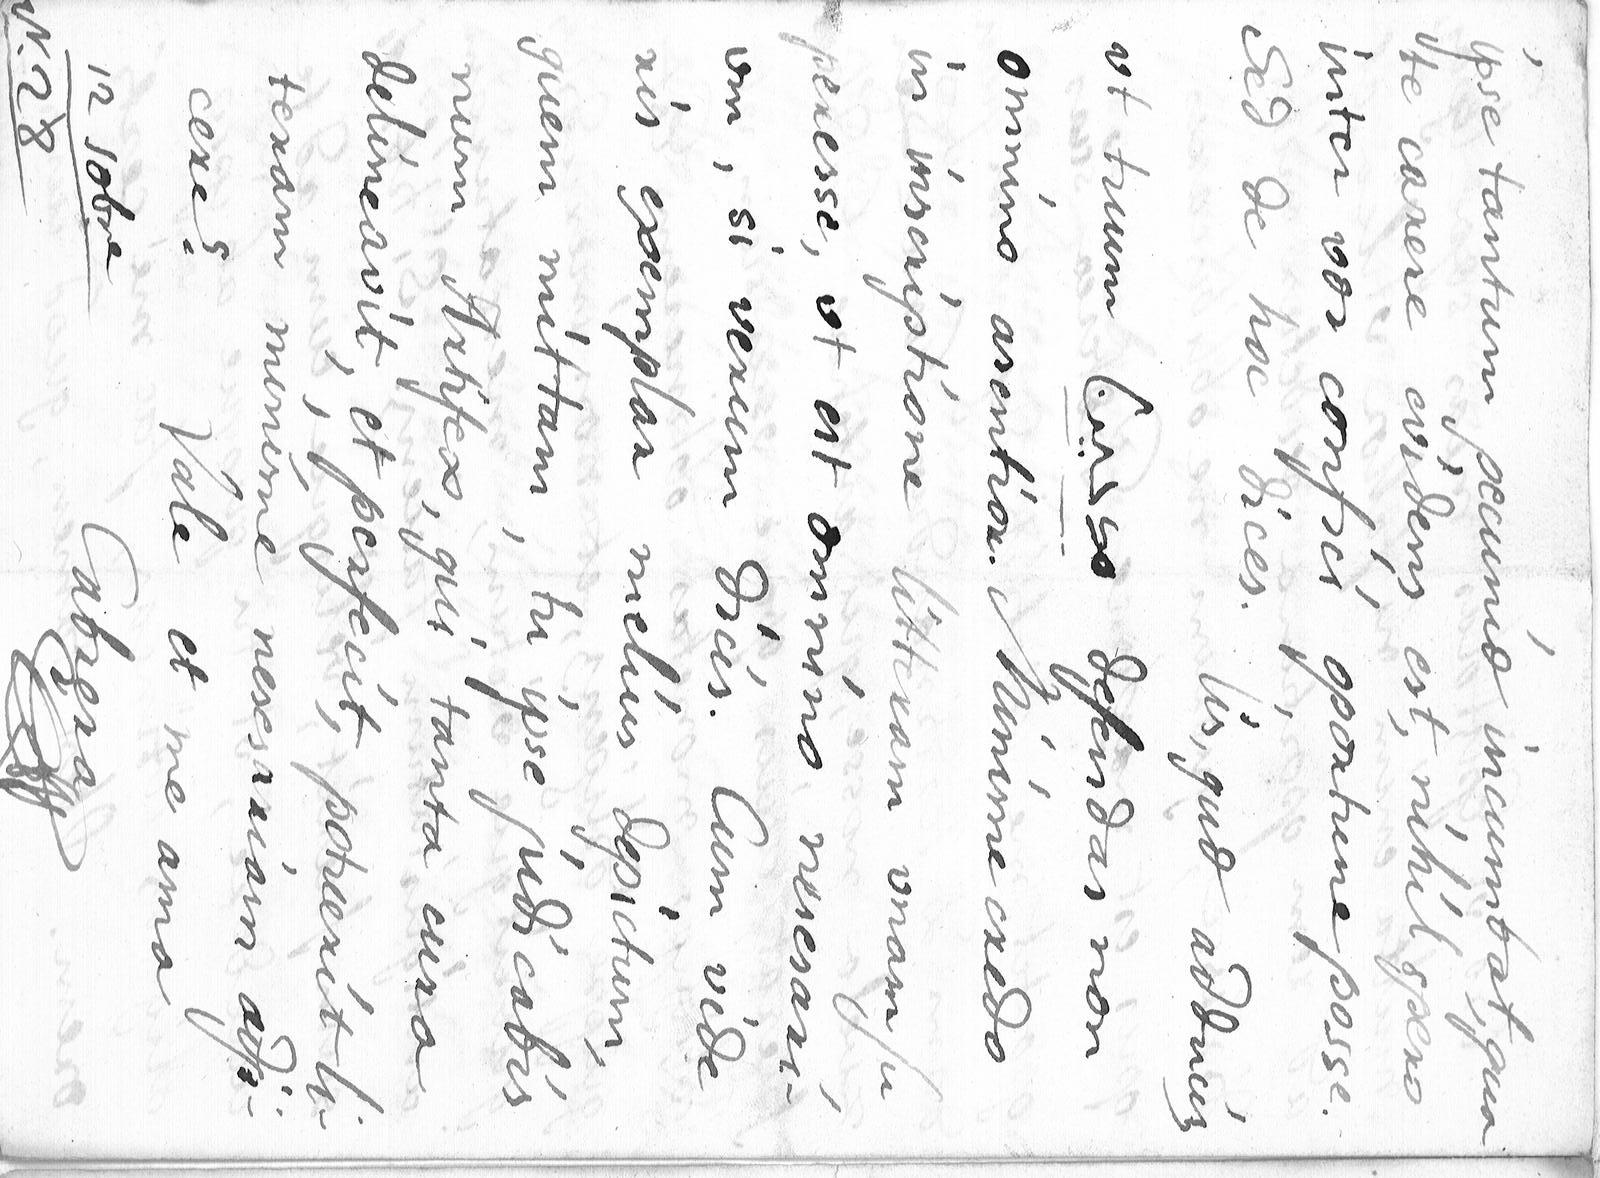 ipse tantum pecunia incumbat, qua
te carere evidens est, nihil spero
inter vos confici oportune posse.
Sed de hoc dices. his, quae adducis
ut tuum Corso defendas non
omnino asentior. Minime credo
in inscriptione litteram unam su
peresse, ut est omnino nesesari-
um, si verum dicis. Cum vide
ris exemplar melius depictum,
quem mittam, tu ipse judicabis
num Artifex, qui tanta cura
delineavit, et perfecit, potuerit li-
teram minime nesesariam adji-
cere? Vale et me ama
12 10bre Cabrera
N. 28